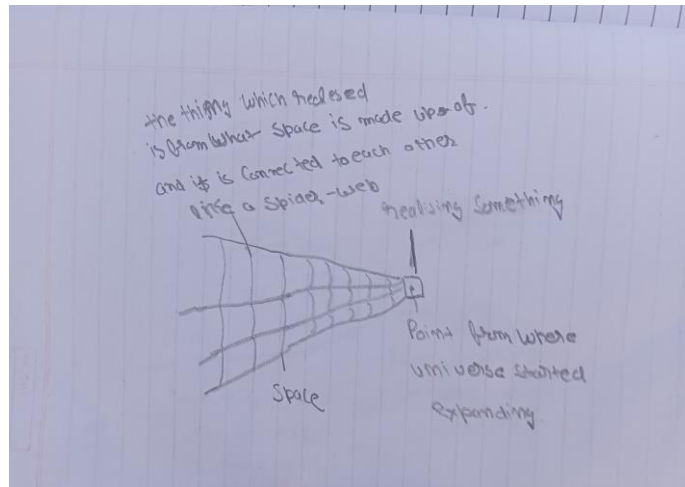 the thing which realesed
is from what space is made up of.
and it is connected to each other
like a spider-web
realising something
Point from where
universe started
expanding
Space